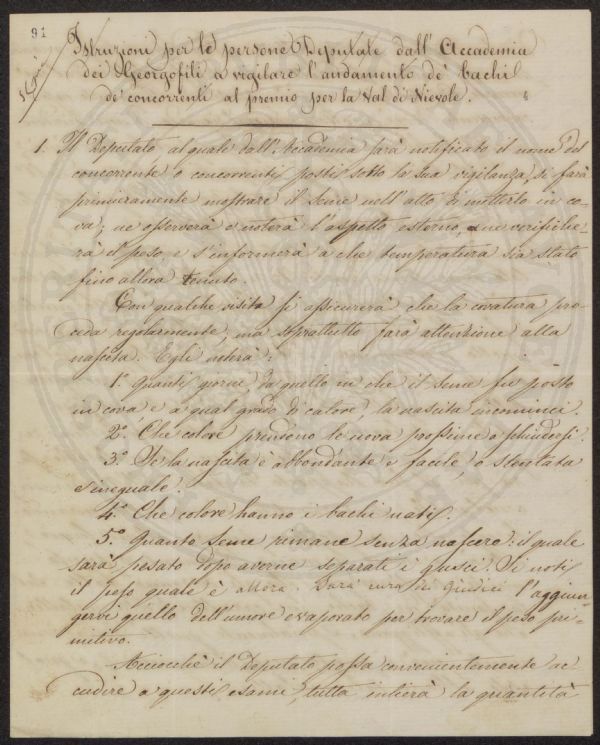 91
Istruzioni per le persone Deputate dall'Accademia
dei Georgofili a vigilare l'andamento de' bachi
de' concorrenti al premio per la Val di Nievole.
1. Il Deputato al quale dall'Accademia sarà notificato il nome del
concorrente o concorrenti posti sotto la sua vigilanza, si farà
primieramente mostrare il seme nell'atto di metterlo in co-
va; ne osserverà e noterà l'aspetto esterno, ne verifiche-
rà il peso e s'informerà a che temperatura sia stato
fino allora tenuto.
Con qualche visita si assicurerà che la covatura pro-
ceda regolarmente, ma soprattutto farà attenzione alla
nascita. Egli noterà:
1.º Quanti giorni da quello in che il seme fu posto
in cova e a qual grado di calore la nascita incominci.
2.º Che colore prendono le uova prossime a schiudersi.
3.º Se la nascita è abbondante e facile, o stentata
e ineguale.
4.º Che colore hanno i bachi nati.
5.º Quanto seme rimane senza nascere: il quale
sarà pesato dopo averne separati i gusci. Si noti
il peso quale è allora. Sarà cura dei Giudici l'aggiun-
gervi quello dell'umore evaporato per trovare il peso pri-
mitivo.
Acciocchè il Deputato possa convenientemente ac-
cudire a questi esami, tutta intiera la quantità